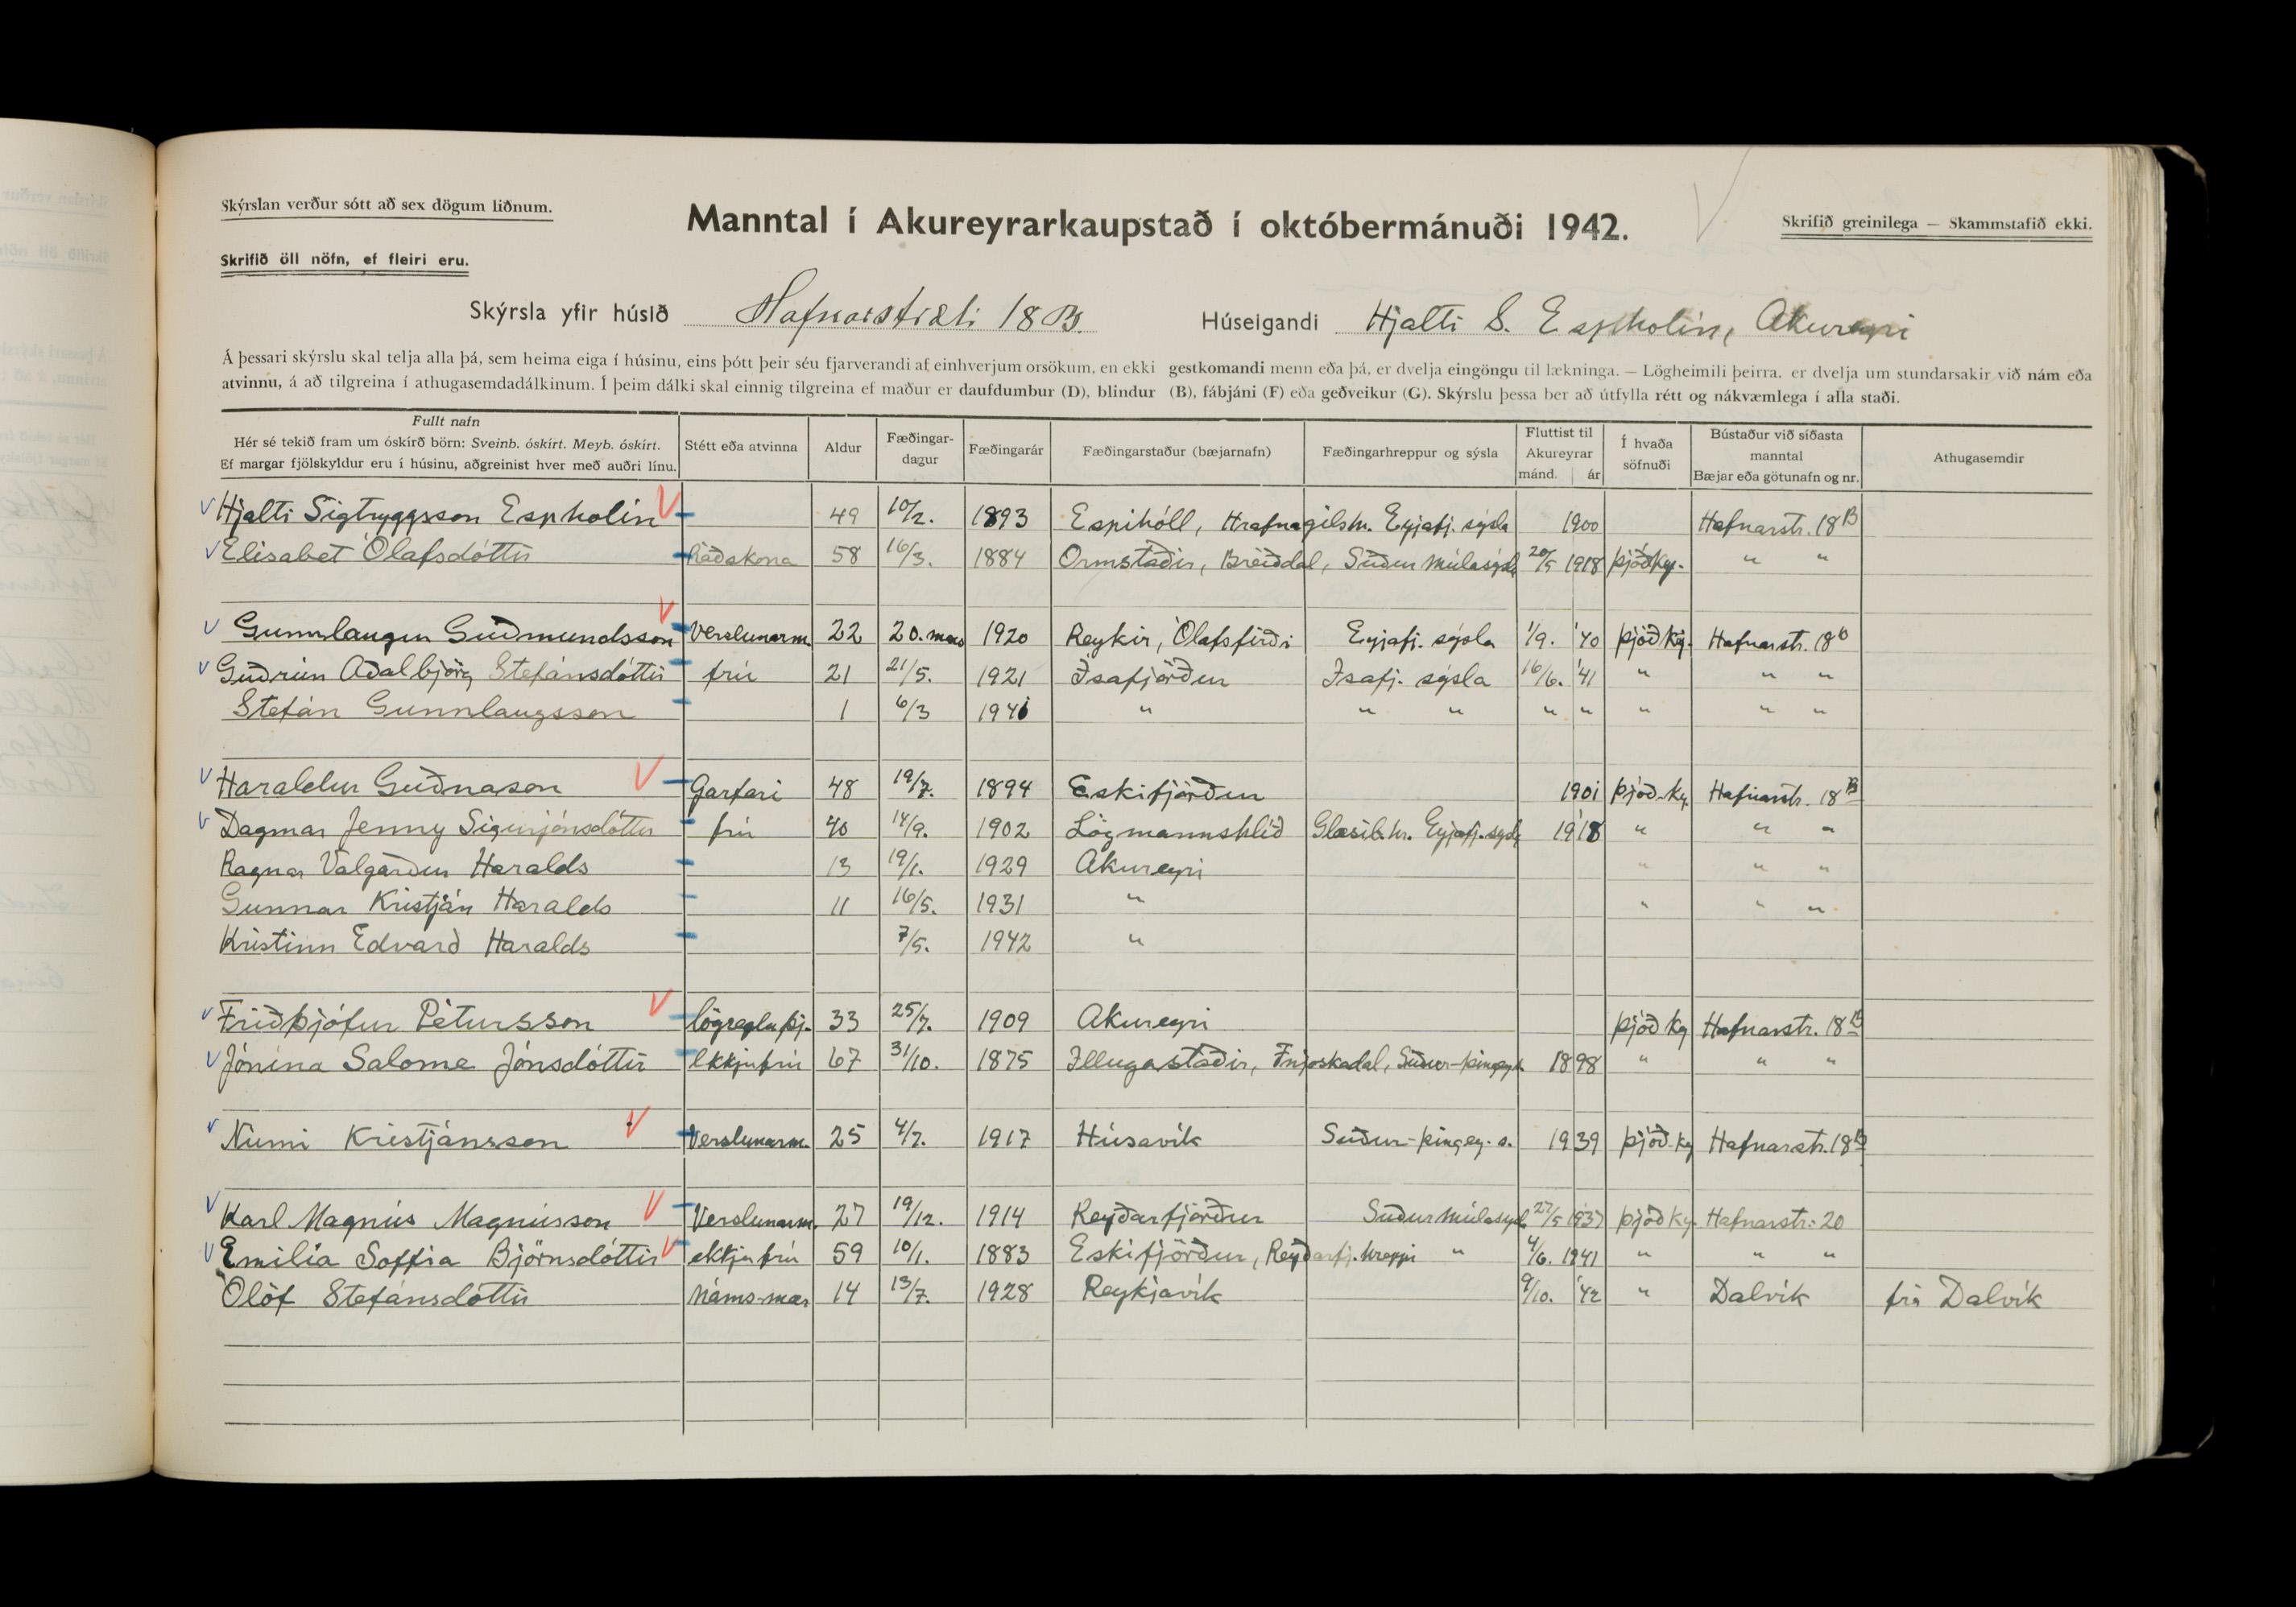 Skýrslan verður sótt að sex dögum liðnum.
Manntal í Akureyrarkaupstað í októbermánuði 1942.
Skrifið greinilega — Skammstafið ekki.
Skrifið öll nöfn, ef fleiri eru.
Skýrsla yfir húsið Hafnarstræti 18 B. Húseigandi Hjalti S. Espholin, Akureyri
Á þessari skýrslu skal telja alla þá, sem heima eiga í húsinu, eins þótt þeir séu fjarverandi af einhverjum orsökum, en ekki gestkomandi menn eða þá, er dvelja eingöngu til lækninga. — Lögheimili þeirra, er dvelja um stundarsakir við nám eða
atvinnu, á að tilgreina í athugasemdadálkinum. Í þeim dálki skal einnig tilgreina ef maður er daufdumbur (D), blindur (B), fábjáni (F) eða geðveikur (G). Skýrslu þessa ber að útfylla rétt og nákvæmlega í alla staði.
Fullt nafn
Hér sé tekið fram um óskírð börn: Sveinb. óskírt. Meyb. óskírt.
Ef margar fjölskyldur eru í húsinu, aðgreinist hver með auðri línu.
Stétt eða atvinna
Aldur
Fæðingar-
dagur
Fæðingarár
Fæðingarstaður (bæjarnafn)
Fæðingarhreppur og sýsla
Fluttist til
Akureyrar
mánd. ár
Í hvaða
söfnuði
Bústaður við síðasta
manntal
Bæjar eða götunafn og nr.
Athugasemdir
Hjalti Sigtryggsson Espholin 49 10/2. 1893 Espihóll, Hrafnagilshr. Eyjafj. sýsla 1900 Hafnarstr. 18 B
Elisabet Ólafsdóttir Ráðskona 58 16/3. 1884 Ormstaðir, Breiðdal, Suður Múlasýsla 20/5 1918 þjóðky. " "
Gunnlaugur Guðmundsson Verslunarm. 22 20. mars 1920 Reykir, Ólafsfirði Eyjafj. sýsla 1/9. '40 þjóðky. Hafnarstr. 18 B
Guðrún Aðalbjörg Stefánsdóttir frú 21 21/5. 1921 Ísafjörður Ísafj. sýsla 16/6. '41 " " "
Stefán Gunnlaugsson 1 6/3 1941 " " " " " " " "
Haraldur Guðnason Garfari 48 19/7. 1894 Eskifjörður 1901 þjóð-ky. Hafnarstr. 18 B
Dagmar Jenny Sigurjónsdóttir frú 40 14/9. 1902 Lögmannshlíð Glæsib.hr. Eyjafj.sýsla 1918 " " "
Ragnar Valgarður Haralds 13 19/1. 1929 Akureyri " " "
Gunnar Kristján Haralds 11 16/5. 1931 " " " "
Kristinn Edvarð Haralds 7/5. 1942 "
Friðþjófur Pétursson lögregluþj. 33 25/7. 1909 Akureyri þjóðky Hafnarstr. 18 B
Jónína Salome Jónsdóttir Ekkjufrú 67 31/10. 1875 Illugastaðir, Fnjoskadal, Suður-þingeys. 1898 " " "
Númi Kristjánsson Verslunarm. 25 4/7. 1917 Húsavík Suður-þingey. s. 1939 þjóð-ky Hafnarstr. 18 B
Karl Magnús Magnússon Verslunarm. 27 19/12. 1914 Reyðarfjörður Suður Múlasýsla 27/5 1937 þjóðky. Hafnarstr. 20
Emilía Soffia Björnsdóttir ekkjufrú 59 10/1. 1883 Eskifjörður, Reyðarfj. hreppi " 4/6. 1941 " " "
Ólöf Stefánsdóttir Náms-mær 14 13/7. 1928 Reykjavík 9/10. '42 " Dalvík frá Dalvík